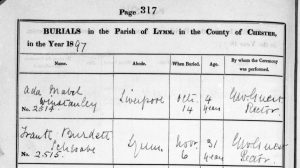 Page 317
BURIALS in the Parish of LYMM, in the County of CHESTER,
in the Year 1897
Name. Abode. When Buried. Age. By whom the Ceremony was performed.
Ada Mabel Winstanley Liverpool Octr 14 4 years Rector
No. 2514.
Frank Burdett Lymm Novr 6 31 years Rector
No. 2515.